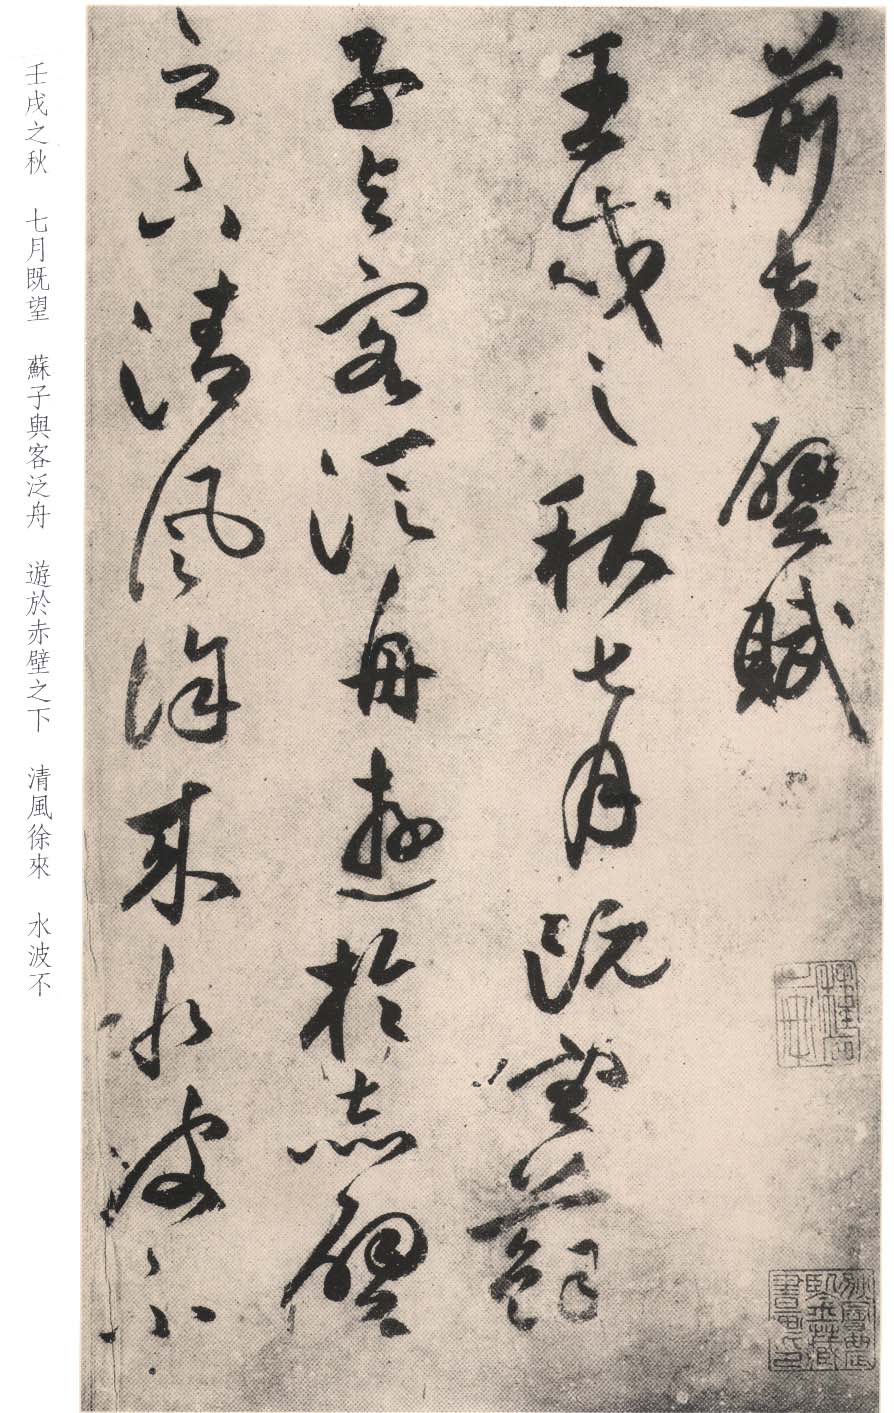 前赤壁賦
壬戌之秋七月既望蘇
子與客泛舟遊於赤壁
之下清風徐來水波不
壬戌之秋 七月既望 蘇子與客泛舟 遊於赤壁之下 清風徐來 水波不